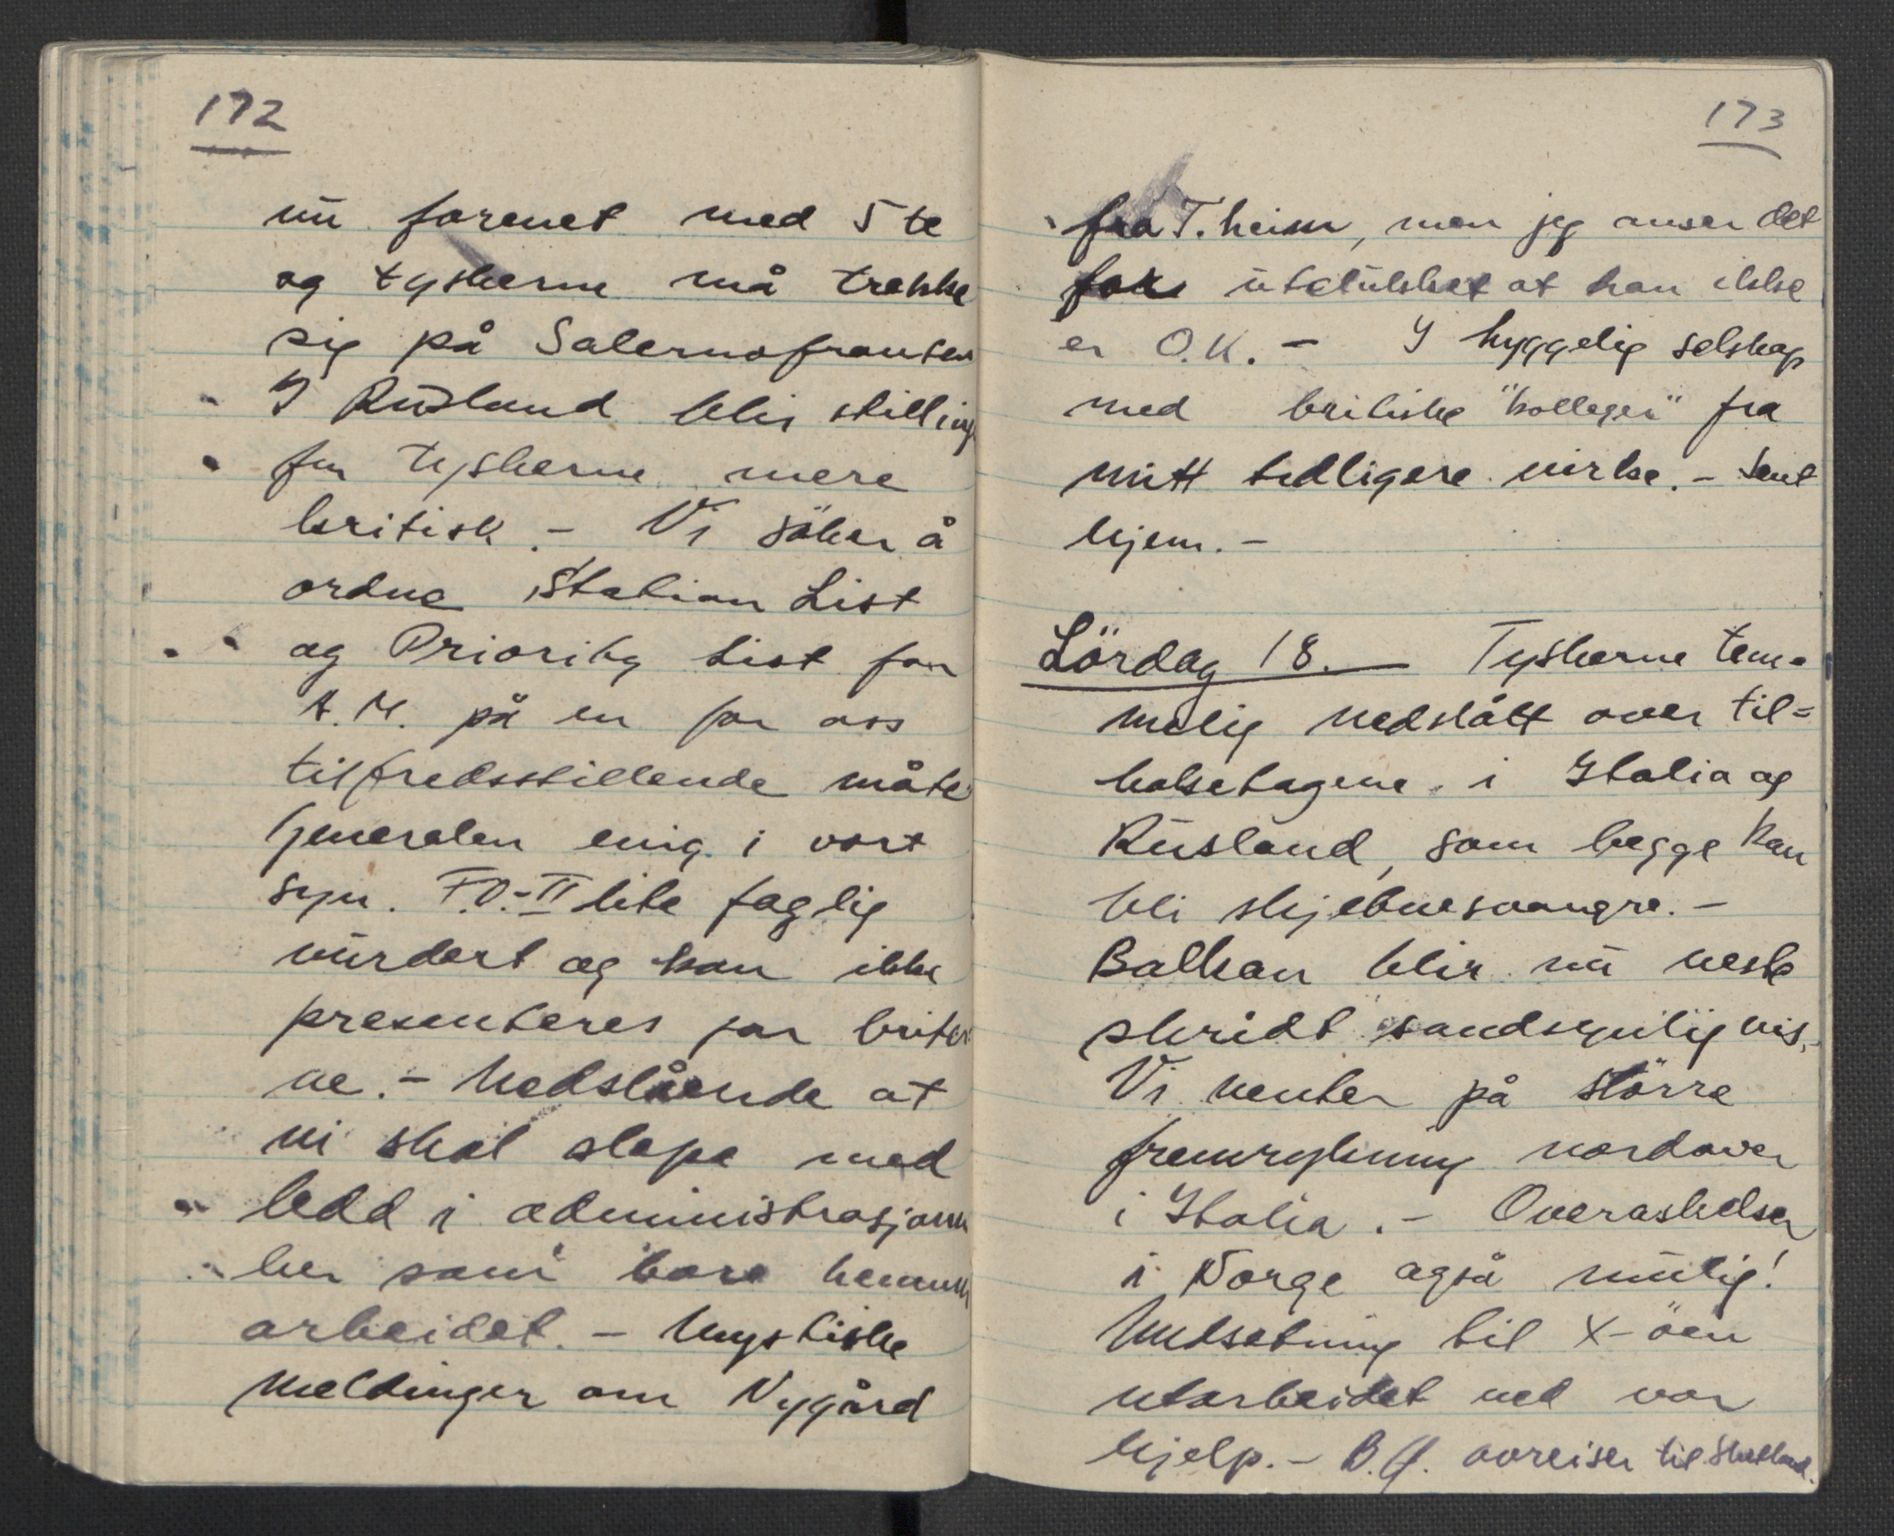 172
nū forenet med 5te
og tyskerne må trekke
sig på Salernofronten
I Rūsland blir stilling
for tyskerne mere
kritisk. – Vi söker å
ordne Station List
og Priority List for
A.M. på en for oss
tilfredsstillende måte
Generalen enig i vort
syn. F.O.-II lite faglig
vūrdert og kan ikke
presenteres for briter
ne. – Nedslående at
vi skal slepe med
ledd i administrasjonen
her som bare hemmer
arbeidet. – Mystiske
meldinger om Nygård
173
fra T.heim, men jeg anser det
for ūtelūkket at han ikke
er O.K. – I hyggelig selskap
med britiske "kolleger" fra
mitt tidligere virke. – Sent
hjem. –
Lördag 18. – Tyskerne tem-
melig nedslått over til=
baketogene i Italia og
Rūsland, som begge kan
bli skjebnesvangre. –
Balkan blir nū neste
skridt sandsynligvis.
Vi venter på större
fremrykning nordover
i Italia. – Overaskelser
i Norge også mūlig!
Undsetning til X-öen
utarbeidet ved vor
hjelp. – B.G. avreiser til Shetland.